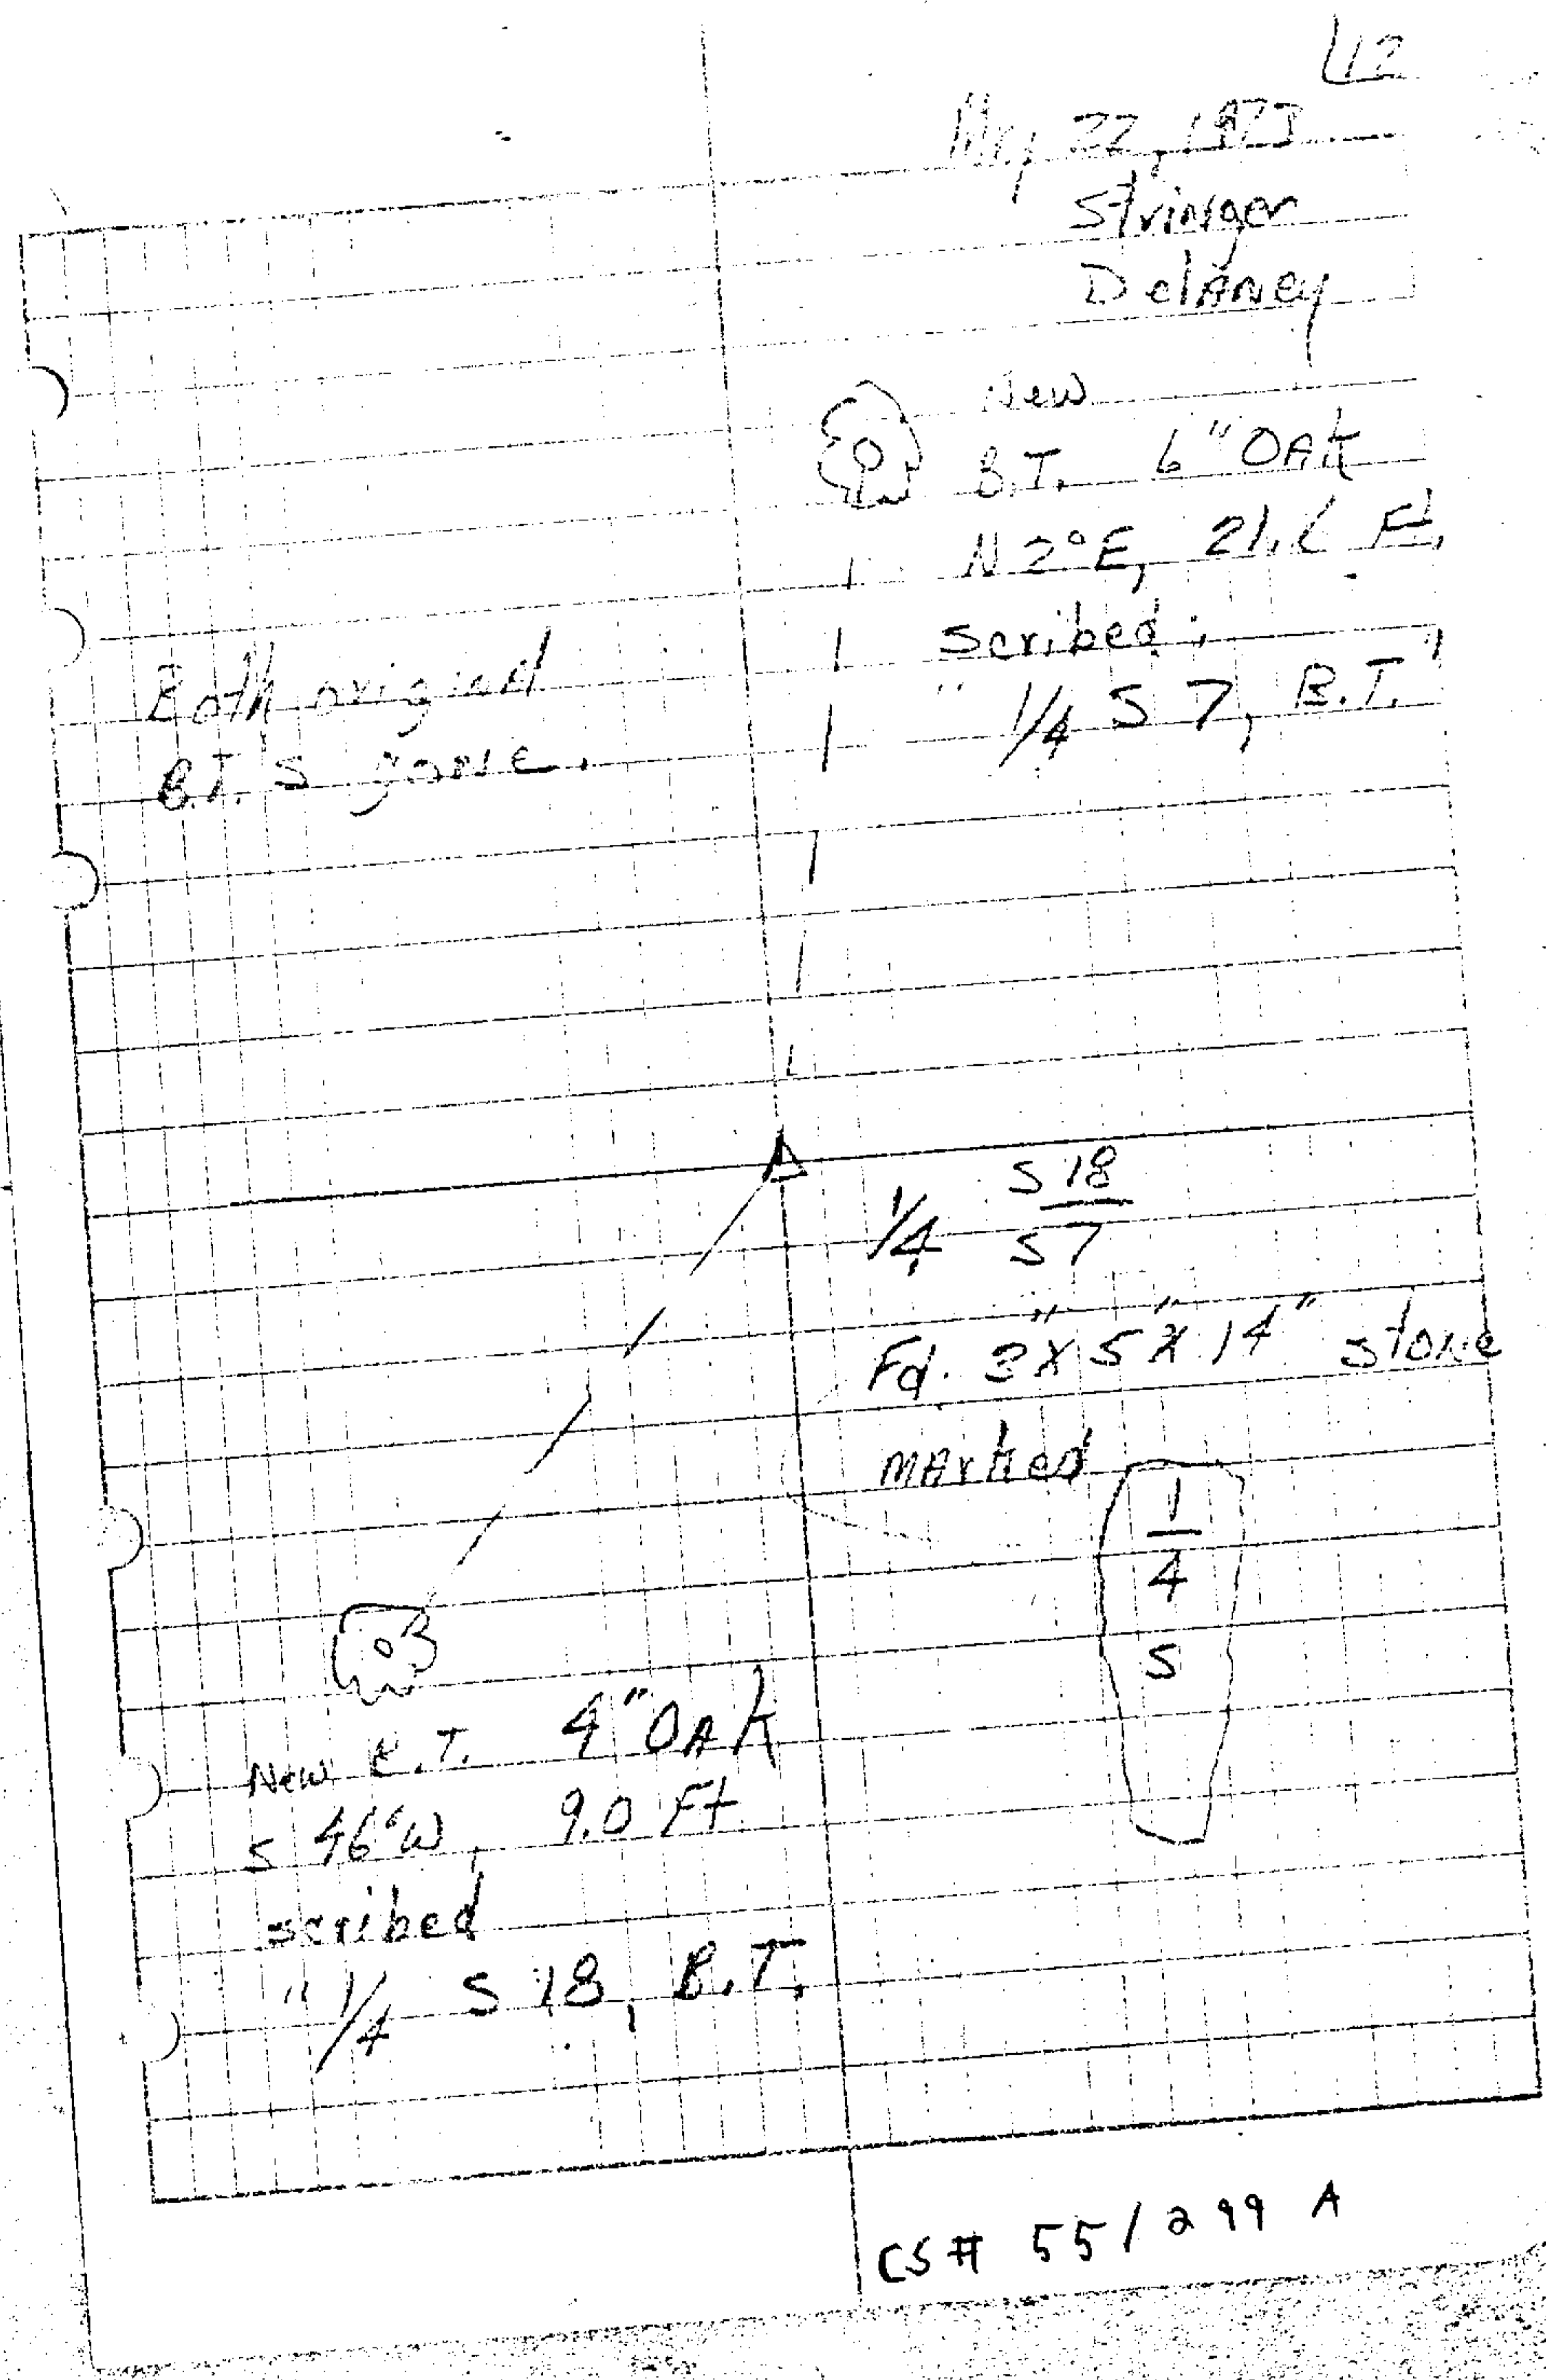 L12
May 22, 1973
Stringer
Delaney
New
B.T. 6" OAK
N 2° E, 21.6 Ft.
scribed:
" 1/4 S 7, B.T."
Both original
B.T.s gone.
1/4 S 18
S 7
Fd. 3" x 5" x 14" stone
marked
1
4
S
New B.T. 4" OAK
S 46° W, 9.0 Ft
scribed
" 1/4 S 18, B.T.
CS# 55/299 A